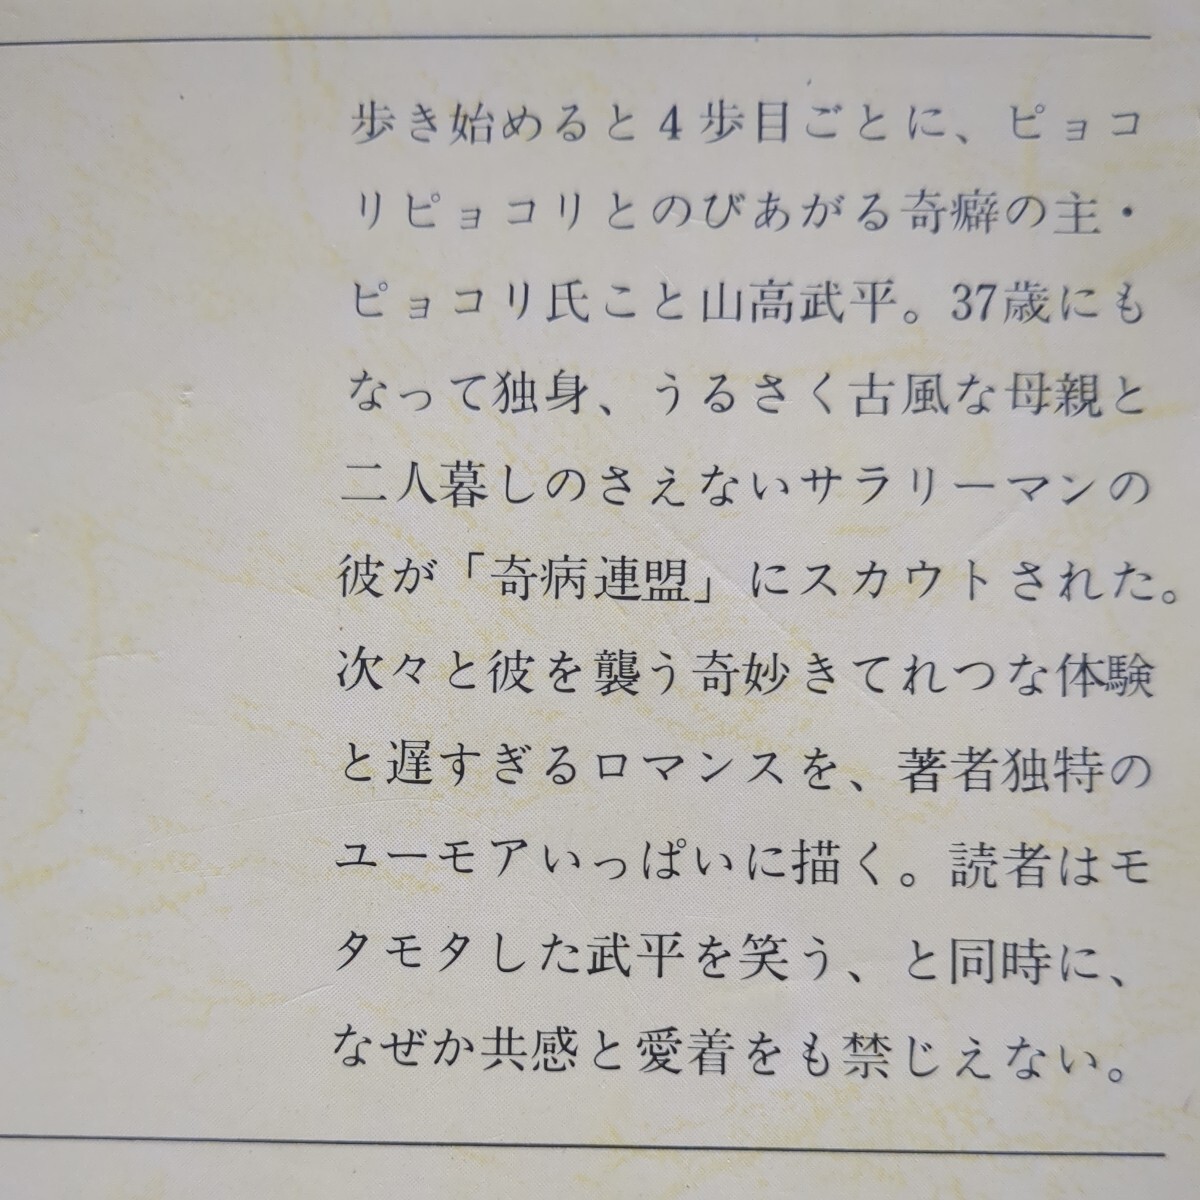 歩き始めると4歩目ごとに、ピョコ
リピョコリとのびあがる奇癖の主・
ピョコリ氏こと山高武平。37歳にも
なって独身、うるさく古風な母親と
二人暮しのさえないサラリーマンの
彼が「奇病連盟」にスカウトされた。
次々と彼を襲う奇妙きてれつな体験
と遅すぎるロマンスを、著者独特の
ユーモアいっぱいに描く。読者はモ
タモタした武平を笑う、と同時に、
なぜか共感と愛着をも禁じえない。